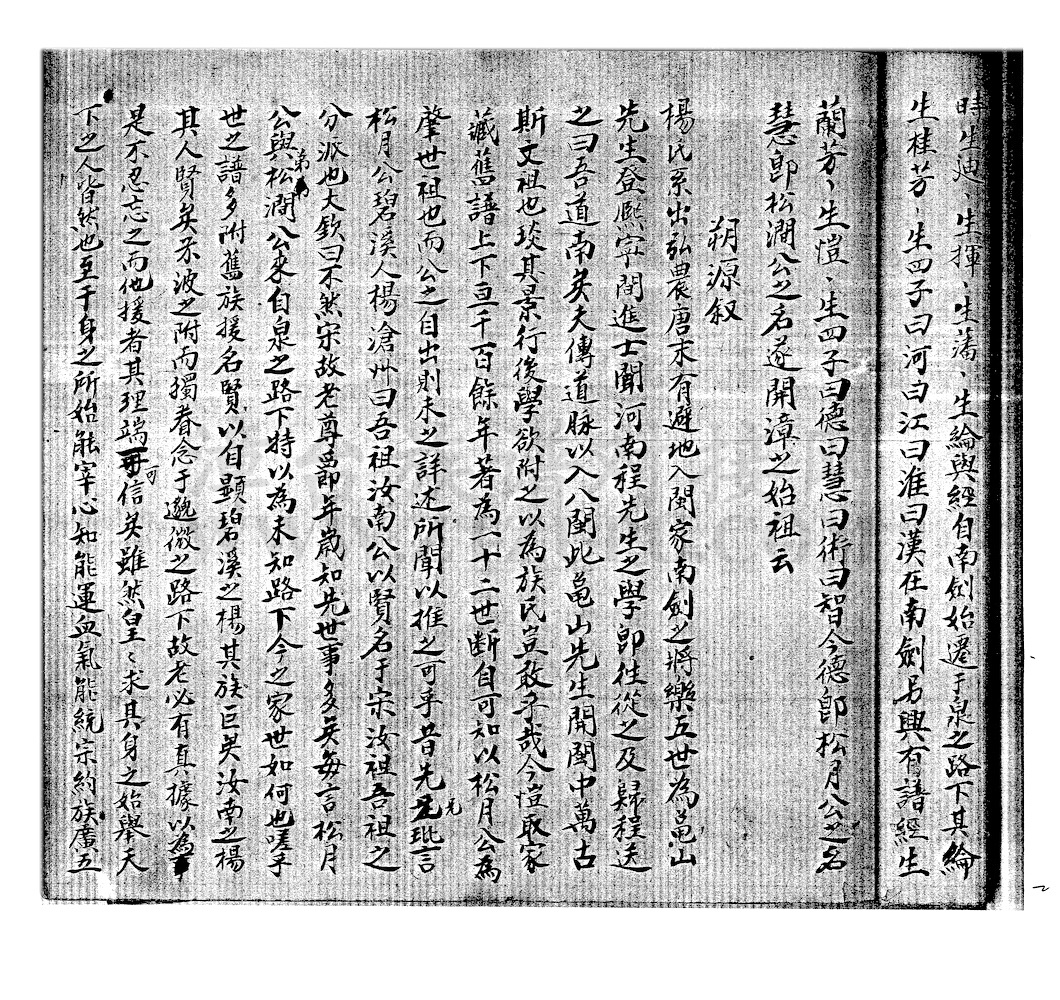 時生迪、生揮、生藩、生綸與經自南劍始遷于泉之路下其綸
生桂芳、生四子曰河曰江曰淮曰漢在南劍另興有譜經生
蘭芳、生愷、生四子曰德曰慧曰術曰智今德即松月公之名
慧即松澗公之名遂開漳之始祖云
朔源叙
楊氏系出弘農唐末有避地入閩家南劍之將樂五世為龜山
先生登熙寧間進士聞河南程先生之學即往從之及歸程送
之曰吾道南矣夫傳道脉以入八閩此龜山先生開閩中萬古
斯文祖也琰其景行後學欲附之以為族氏豈敢乎哉今愷取家
藏舊譜上下亘千百餘年著為一十二世断自可知以松月公為
肇世祖也而公之自出則未之詳述所聞以推之可乎昔先兄玭言
松月公碧溪人楊滄州曰吾祖汝南公以賢名于宋汝祖吾祖之
分派也大欽曰不然宋故老尊爵年歲知先世事多矣每言松月
公與弟松澗公來自泉之路下特以為未知路下今之家世如何也嗟乎
世之譜多附舊族援名賢以自顯碧溪之楊其族巨矣汝南之楊
其人賢矣不波之附而獨眷念于邈微之路下故老必有真據以為
是不忍忘之而他援者其理端可信矣雖然皇〻求其身之始舉天
下之人皆然也至于身之所始能宰心知能運血氣能統宗約族廣五